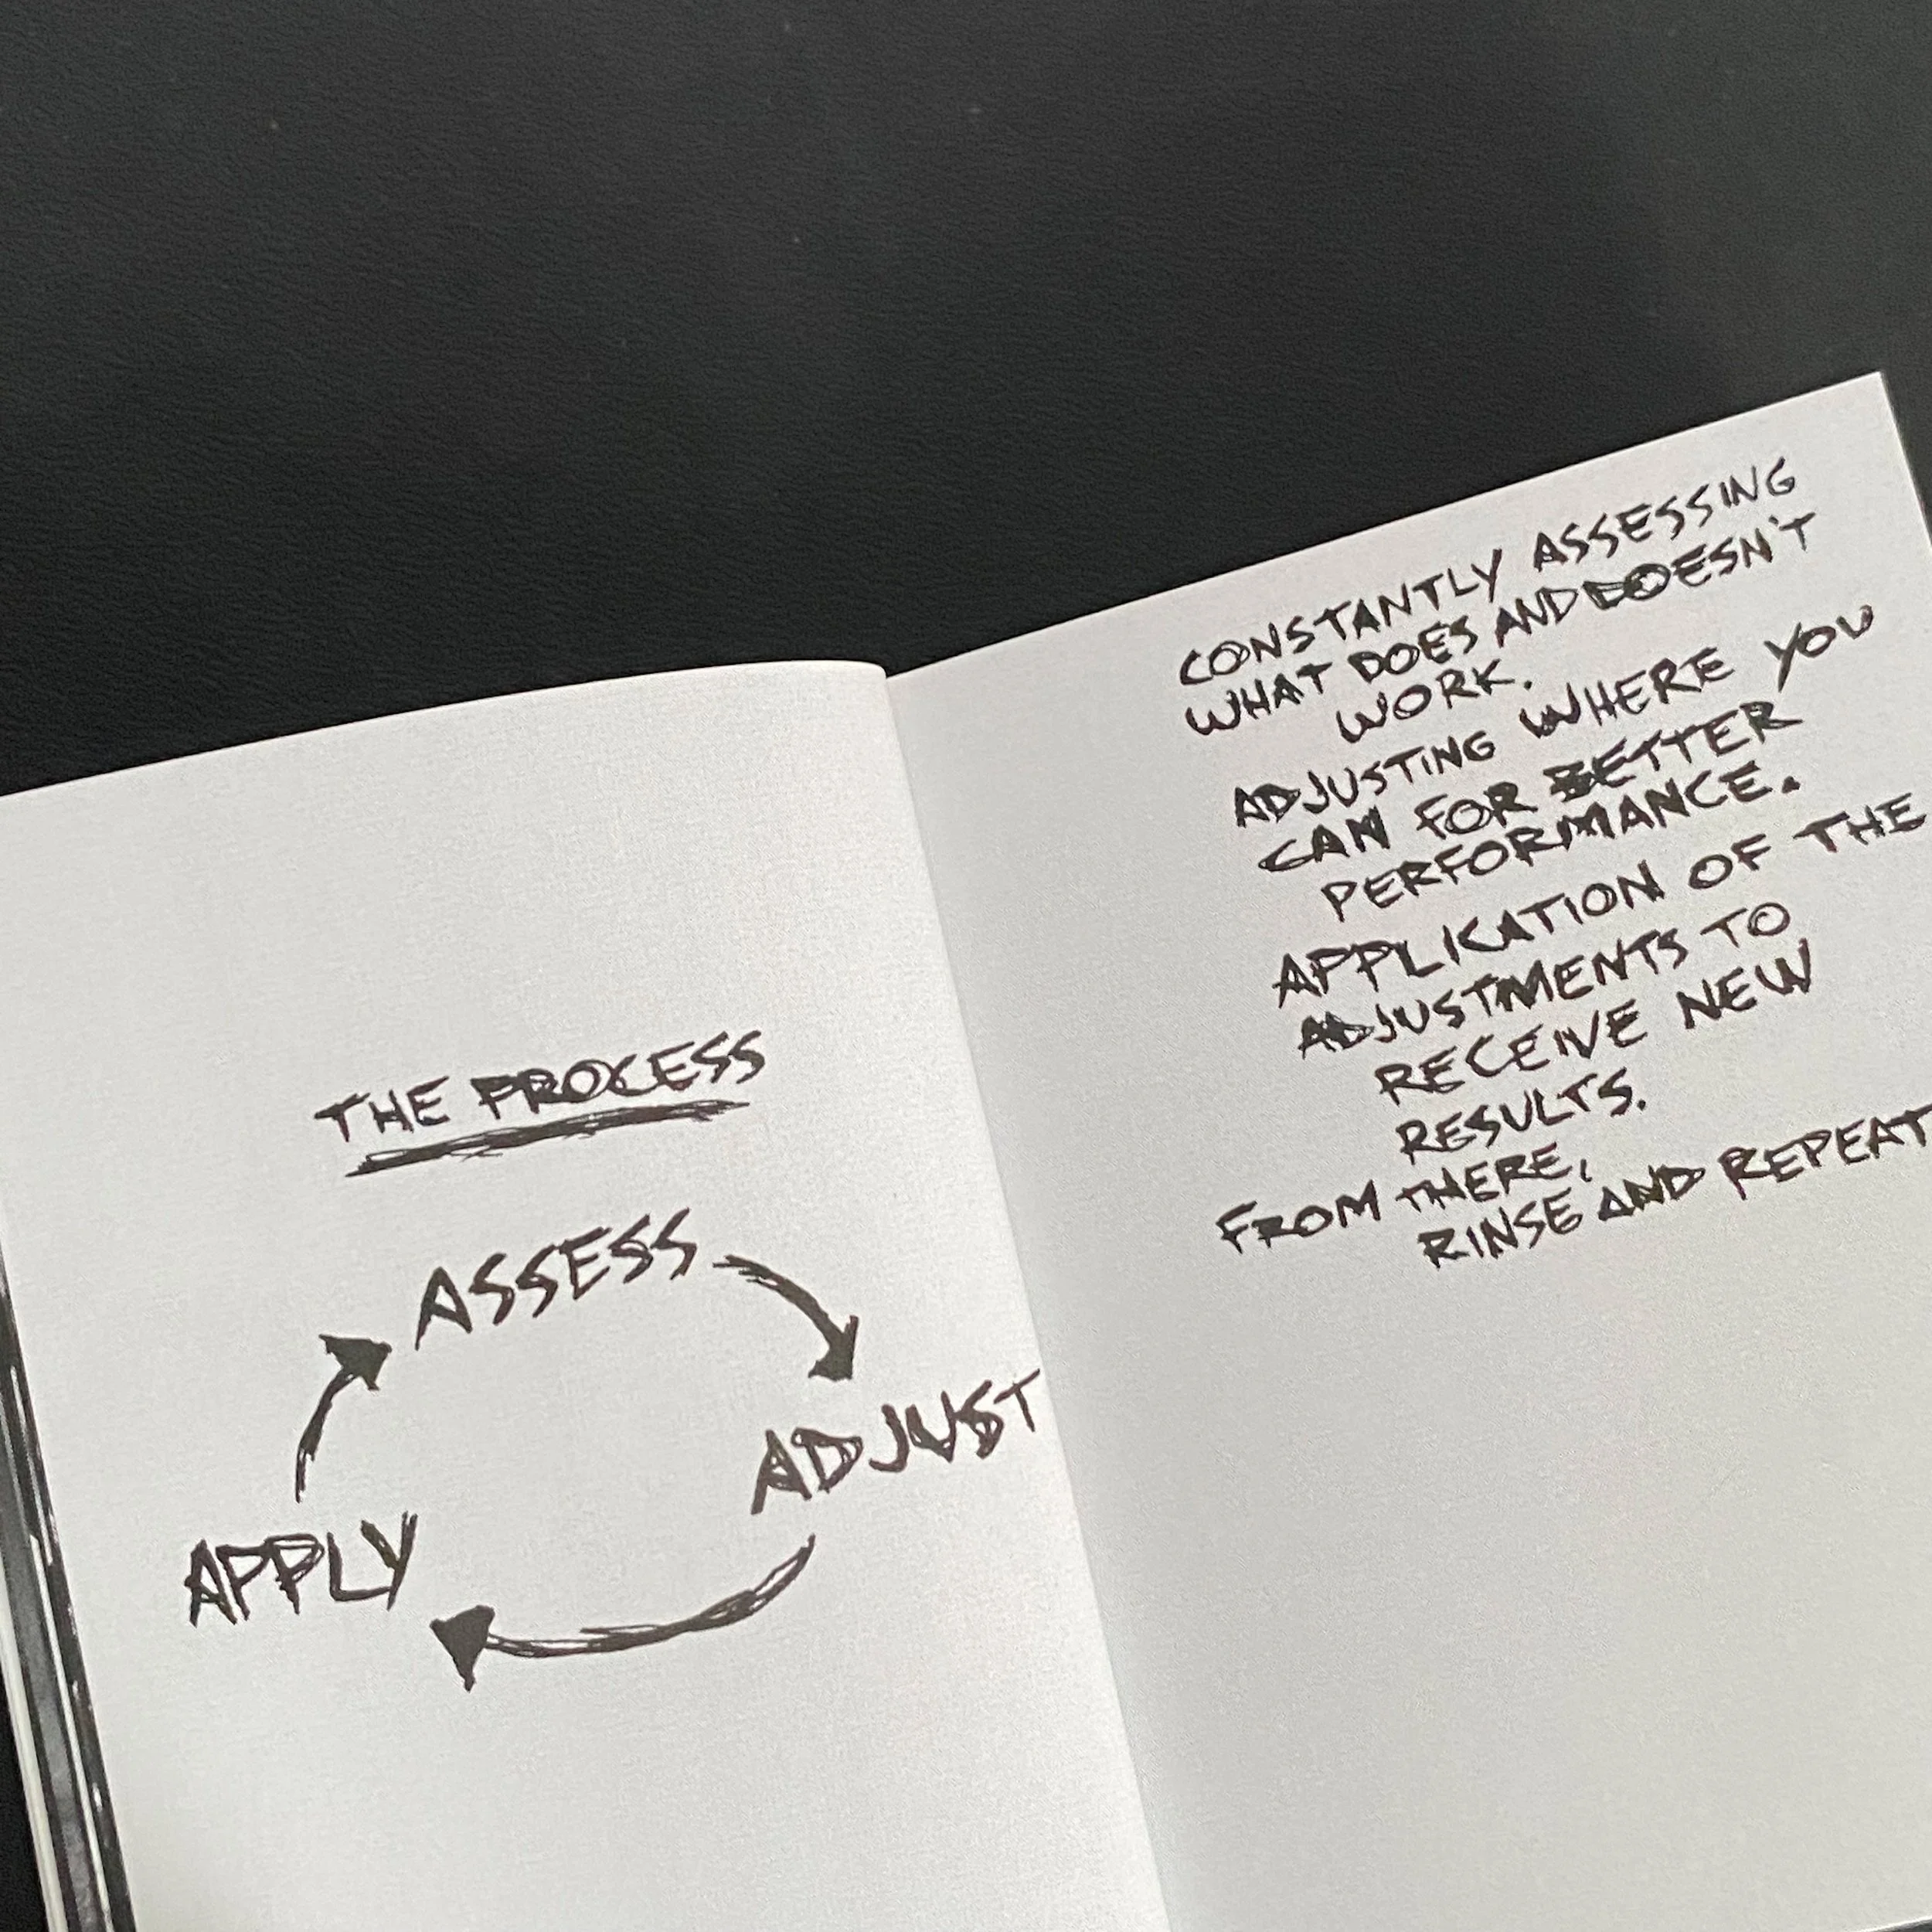 THE PROCESS
ASSESS
ADJUST
APPLY
CONSTANTLY ASSESSING
WHAT DOES AND DOESN'T
WORK.
ADJUSTING WHERE YOU
CAN FOR BETTER
PERFORMANCE.
APPLICATION OF THE
ADJUSTMENTS TO
RECEIVE NEW
RESULTS.
FROM THERE,
RINSE AND REPEAT